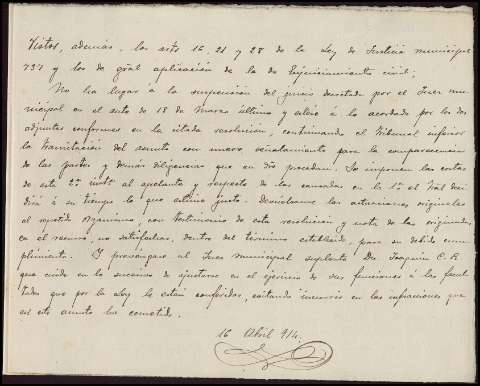 Vistos, además, los arts 16, 21 y 28 de la Ley de Justicia municipal
737 y los de gral aplicación de la de Enjuiciamiento civil;
No ha lugar á la suspensión del juicio decretada por el Juez mu-
nicipal en el auto de 18 de Marzo último y á lo acordado por los dos
adjuntos conformes en la citada resolución, continuando el Tribunal inferior
la tramitación del asunto con nuevo señalamiento para la comparecencia
de las partes y demás diligencias que en dro procedan. Se imponen las costas
de esta 2ª instª al apelante y respecto de las causadas en la 1ª el Tral deci
dirá á su tiempo lo que estime justo. Devuélvanse las actuaciones originales
al repetido Organismo, con testimonio de esta resolución y nota de las originadas
en el recurso, no satisfechas, dentro del término establecido, para su debido cum-
plimiento. Y prevéngase al Juez municipal suplente Dn. Joaquín C. R.
que cuide en lo sucesivo de ajustarse en el ejercicio de sus funciones á las facul-
tades que por la Ley le están conferidas, evitando incurrir en las infracciones que
en este asunto ha cometido.
16 Abril 914.